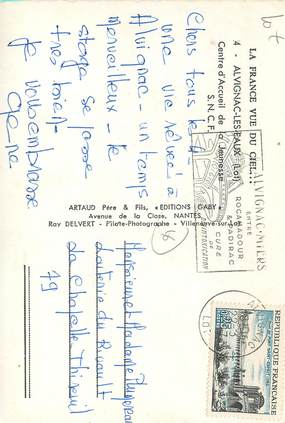 Lot
Chers tous les 4 -
une vie rêvée à
Alvignac - un temps
merveilleux - le
stage se passe
très bien -
Je vous embrasse
LA FRANCE VUE DU CIEL...
4 - ALVIGNAC-LES-EAUX (Lot)
Centre d'Accueil de la Jeunesse
S.N.C.F.
ARTAUD Père & Fils, "EDITIONS GABY"
Avenue de la Close, NANTES
Ray DELVERT - Pilote-Photographe - Villeneuve-sur-Lot
ALVIGNAC-MIERS
ENTRE
ROCAMADOUR
& PADIRAC
CURE
DE
DÉSINTOXICATION
LOT
REPUBLIQUE FRANÇAISE
Monsieur et Madame
La Chapelle Thireuil
79